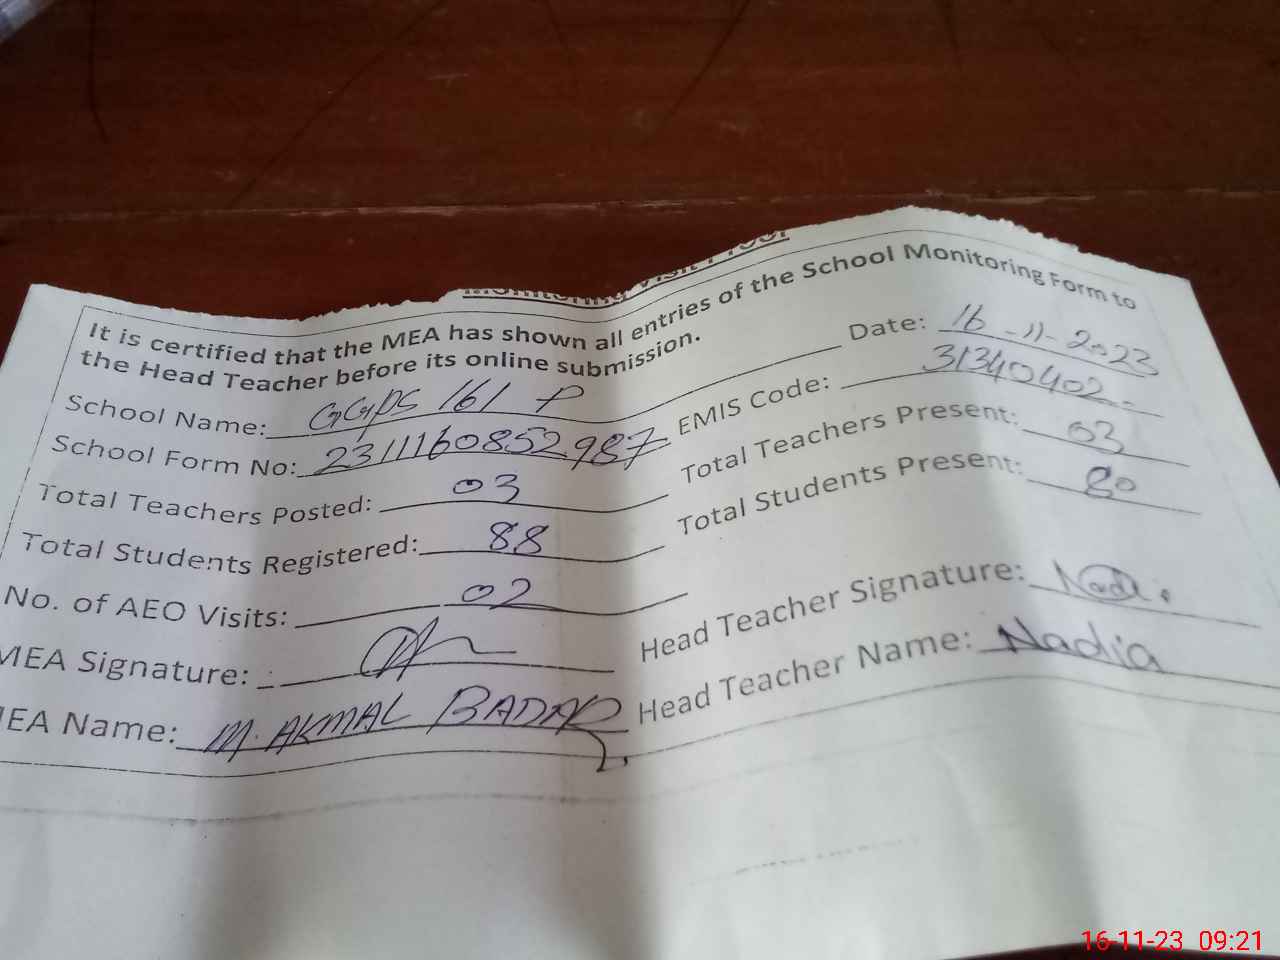 Monitoring Visit Proof
It is certified that the MEA has shown all entries of the School Monitoring Form to
the Head Teacher before its online submission.
School Name: GGPS 161 P Date: 16-11-2023
School Form No: 2311160852987 EMIS Code: 31340402
Total Teachers Posted: 03 Total Teachers Present: 03
Total Students Registered: 88 Total Students Present: 80
No. of AEO Visits: 02
MEA Signature: Head Teacher Signature: Nadi
MEA Name: M. AKMAL BADAR Head Teacher Name: Nadia
16-11-23 09:21